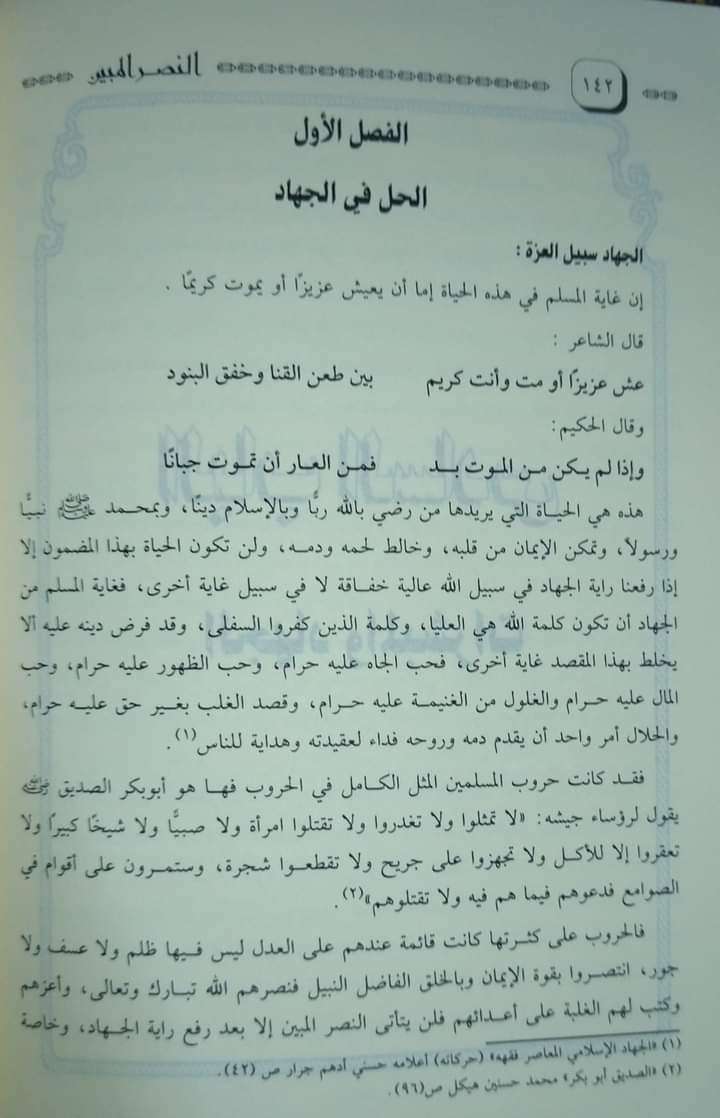 ١٤٢ النصر المبين
الفصل الأول
الحل في الجهاد
الجهاد سبيل العزة :
إن غاية المسلم في هذه الحياة إما أن يعيش عزيزًا أو يموت كريمًا .
قال الشاعر :
عش عزيزًا أو مت وأنت كريم بين طعن القنا وخفق البنود
وقال الحكيم:
وإذا لم يكن من الموت بد فمن العار أن تموت جبانًا
هذه هي الحياة التي يريدها من رضي بالله ربًّا وبالإسلام دينًا، وبمحمد ﷺ نبيًّا
ورسولاً، وتمكن الإيمان من قلبه، وخالط لحمه ودمه، ولن تكون الحياة بهذا المضمون إلا
إذا رفعنا راية الجهاد في سبيل الله عالية خفاقة لا في سبيل غاية أخرى، فغاية المسلم من
الجهاد أن تكون كلمة الله هي العليا، وكلمة الذين كفروا السفلى، وقد فرض دينه عليه ألا
يخلط بهذا المقصد غاية أخرى، فحب الجاه عليه حرام، وحب الظهور عليه حرام، وحب
المال عليه حرام والغلول من الغنيمة عليه حرام، وقصد الغلب بغير حق عليه حرام،
والحلال أمر واحد أن يقدم دمه وروحه فداء لعقيدته وهداية للناس(١).
فقد كانت حروب المسلمين المثل الكامل في الحروب فها هو أبوبكر الصديق رضي الله عنه
يقول لرؤساء جيشه: «لا تمثلوا ولا تغدروا ولا تقتلوا امرأة ولا صبيًّا ولا شيخًا كبيرًا ولا
تعقروا إلا للأكل ولا تجهزوا على جريح ولا تقطعوا شجرة، وستمرون على أقوام في
الصوامع فدعوهم فيما هم فيه ولا تقتلوهم»(٢).
فالحروب على كثرتها كانت قائمة عندهم على العدل ليس فيها ظلم ولا عسف ولا
جور، انتصروا بقوة الإيمان وبالخلق الفاضل النبيل فنصرهم الله تبارك وتعالى، وأعزهم
وكتب لهم الغلبة على أعدائهم فلن يتأتى النصر المبين إلا بعد رفع راية الجهاد، وخاصة
(١) «الجهاد الإسلامي المعاصر فقهه» (حركاته) أعلامه حسني أدهم جرار ص (٤٢).
(٢) «الصديق أبو بكر» محمد حسنين هيكل ص(٩٦).